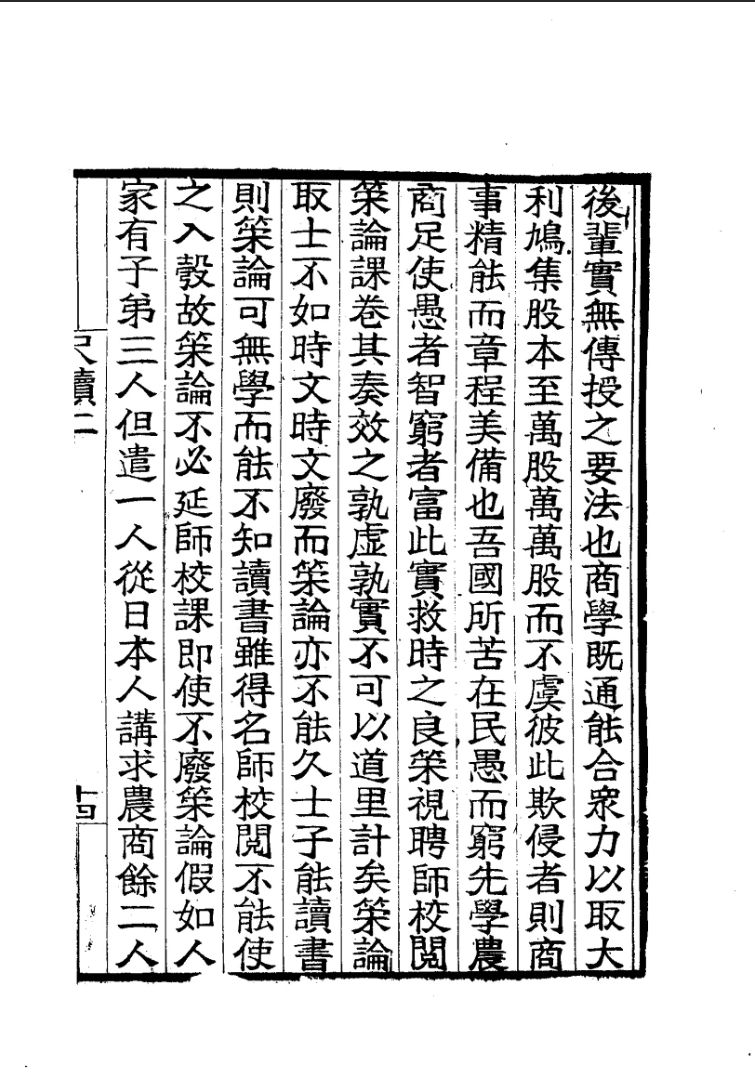 後輩實無傳授之要法也商學既通能合衆力以取大
利鳩集股本至萬股萬萬股而不虞彼此欺侵者則商
事精能而章程美備也吾國所苦在民愚而窮先學農
商足使愚者智窮者富此實救時之良策視聘師校閱
策論課卷其奏效之孰虛孰實不可以道里計矣策論
取士不如時文時文廢而策論亦不能久士子能讀書
則策論可無學而能不知讀書雖得名師校閱不能使
之入彀故策論不必延師校課即使不廢策論假如人
家有子弟三人但遣一人從日本人講求農商餘二人
尺牘二
十四